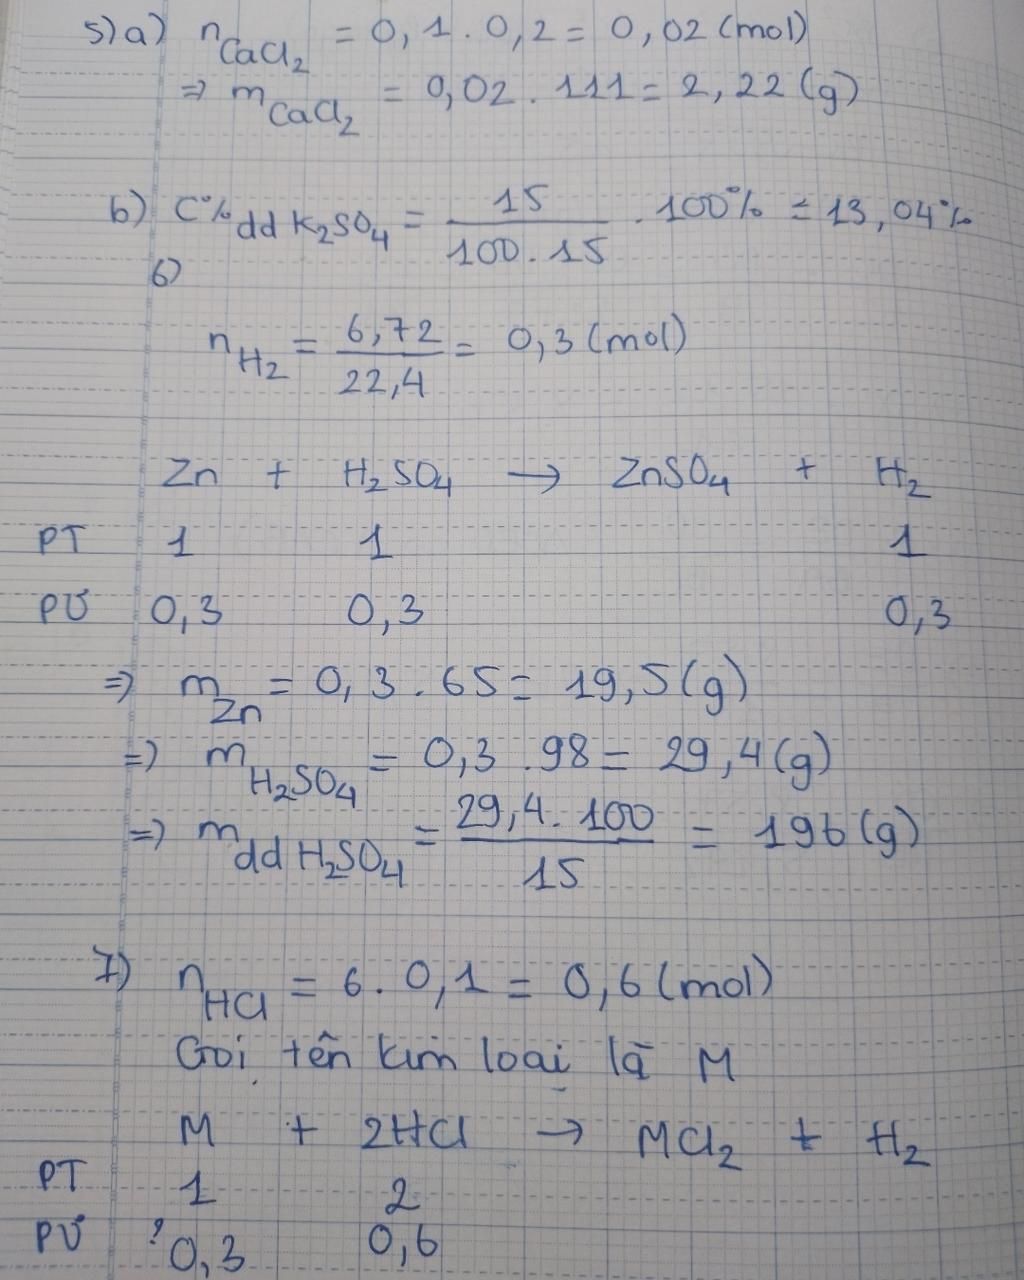 5)a) nCaCl2 = 0,1 . 0,2 = 0,02 (mol)
=> mCaCl2 = 0,02 . 111 = 2,22 (g)
b) C% dd K2SO4 = 15 / 100 . 15 . 100% = 13,04%
6)
nH2 = 6,72 / 22,4 = 0,3 (mol)
Zn + H2SO4 → ZnSO4 + H2
PT 1 1 1
PƯ 0,3 0,3 0,3
=> mZn = 0,3 . 65 = 19,5 (g)
=> mH2SO4 = 0,3 . 98 = 29,4 (g)
=> m dd H2SO4 = 29,4 . 100 / 15 = 196 (g)
7) nHCl = 6 . 0,1 = 0,6 (mol)
Gọi tên kim loại là M
M + 2HCl → MCl2 + H2
PT 1 2
PƯ ? 0,3 0,6